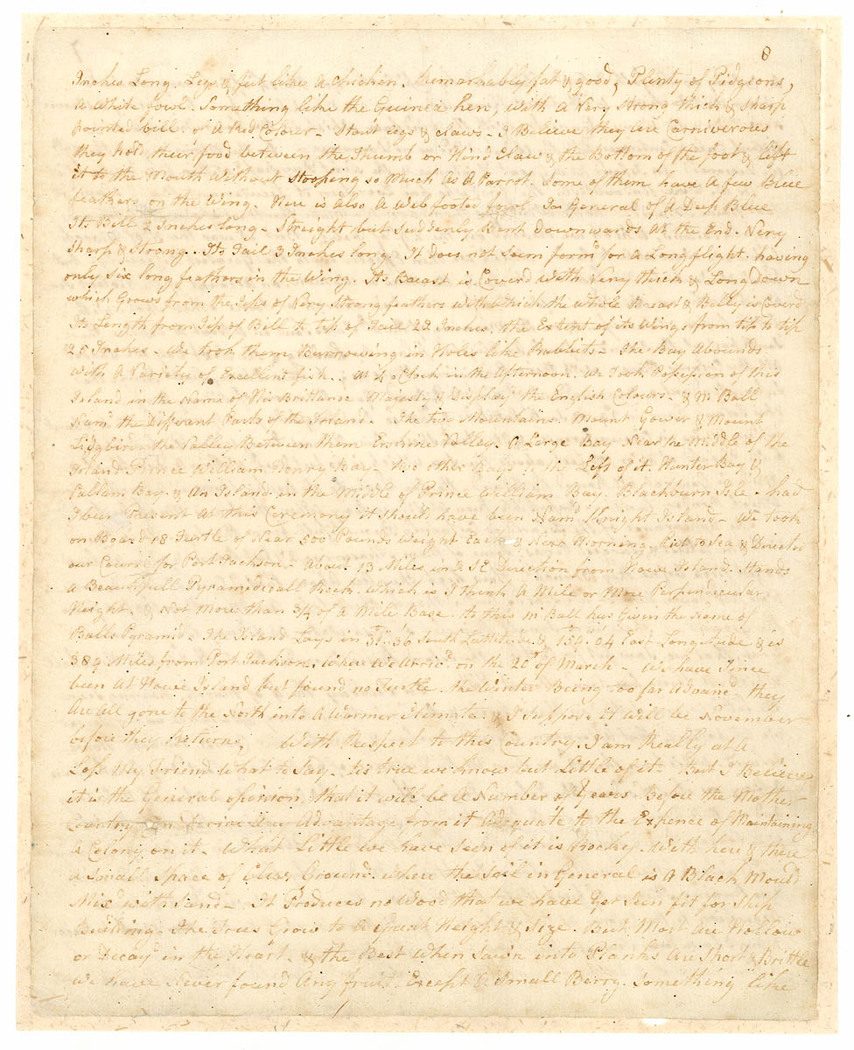 8
Inches Long. Legs & feet like a Chicken. Remarkably fat & good, Plenty of Pidgeons,
A White fowl. Something like the Guinea hen, with a Very Strong thick & sharp
pointed bill. of a Red Colour - Stout legs & claws - I Believe they are Carniverous
they hold their food between the Thumb or Hind Claw & the Bottom of the foot & lift
it to the Mouth Without Stooping so Much As A Parrot. Some of them have A few Blue
feathers on the Wing. Here is Also A Web footed fowl. In General of A Deep Blue
Its Bill 2 Inches long - Straight but Suddenly Bent Downwards At the End. Very
Sharp & Strong. Its Tail 3 Inches long. It does not Seem form'd for A Long flight. having
only Six long feathers in the Wing. Its Breast is Coverd With Very thick & Long Down
which Grows from the Tips of Very Strong feathers With which the whole Breast & Belly is Coverd
Its Length from Tip of Bill to tip of Tail 22 Inches, the Extent of its Wings from tip to tip
25 Inches. We took them Burrowing in Holes like Rabbits - The Bay Abounds
With A Variety of Excellent fish. At 4 oClock in the Afternoon. We Took Possession of this
Island in the Name of His Brittanic Majesty & Display'd the English Colours - & Mr Ball
Nam'd the Different Parts of the Island. The two Mountains. Mount Gower & Mount
Lidgbird - the Valley Between them Erskine Valley. A Large Bay Near the Middle of the
Island Prince William Henry Bay - two other Bays to the Left of it. Hunter Bay &
Callam Bay. & An Island in the Middle of Prince William Bay. Blackburn Isle - had
I been Present At this Ceremony it Should have been Nam'd Knight Island - We took
on Board 18 Turtle of Near 500 Pounds Weight Each & Next Morning. Put to Sea & Directed
our Course for Port Jackson - About 13 Miles in a SE Direction from Howe Island. Stands
a Beautifull Pyramidicall Rock. Which is I think A Mile or More Perpendicular
Height. & Not More than 3/4 of A Mile Base. to this Mr Ball has Given the Name of
Balls Pyramid - The Island Lays in 31°..36 South Lattitude & 159°..04 East Longitude & is
389 Miles from Port Jackson. Where We Arriv'd on the 20th of March - We have Since
been At Howe Island but found no Turtle. the Winter Being too far Advanc'd they
Are All gone to the North into A Warmer Climate. & I suppose it Will be November
before they Returns, With Respect to this Country. I am Really at A
Loss My friend what to Say. tis true we know but Little of it. But I Believe
it is the General opinion, that it will be A Number of Years. Before the Mother
Country Can derive Any Advantage from it Adequate to the Expence of Maintaining
A Colony on it. What Little we have Seen of it is Rocky. With here & there
a Small Space of Clear Ground. where the Soil in General is A Black Mould
Mix'd with Sand - It Produces no Wood that we have Yet Seen fit for Ship
Building. The Trees Grow to A Great Height & Size. But Most Are Hollow
or Decay'd in the Heart. & the Best When Sawn into Planks Are Short & Brittle
We have Never found Any fruit. Except A Small Berry. Something like